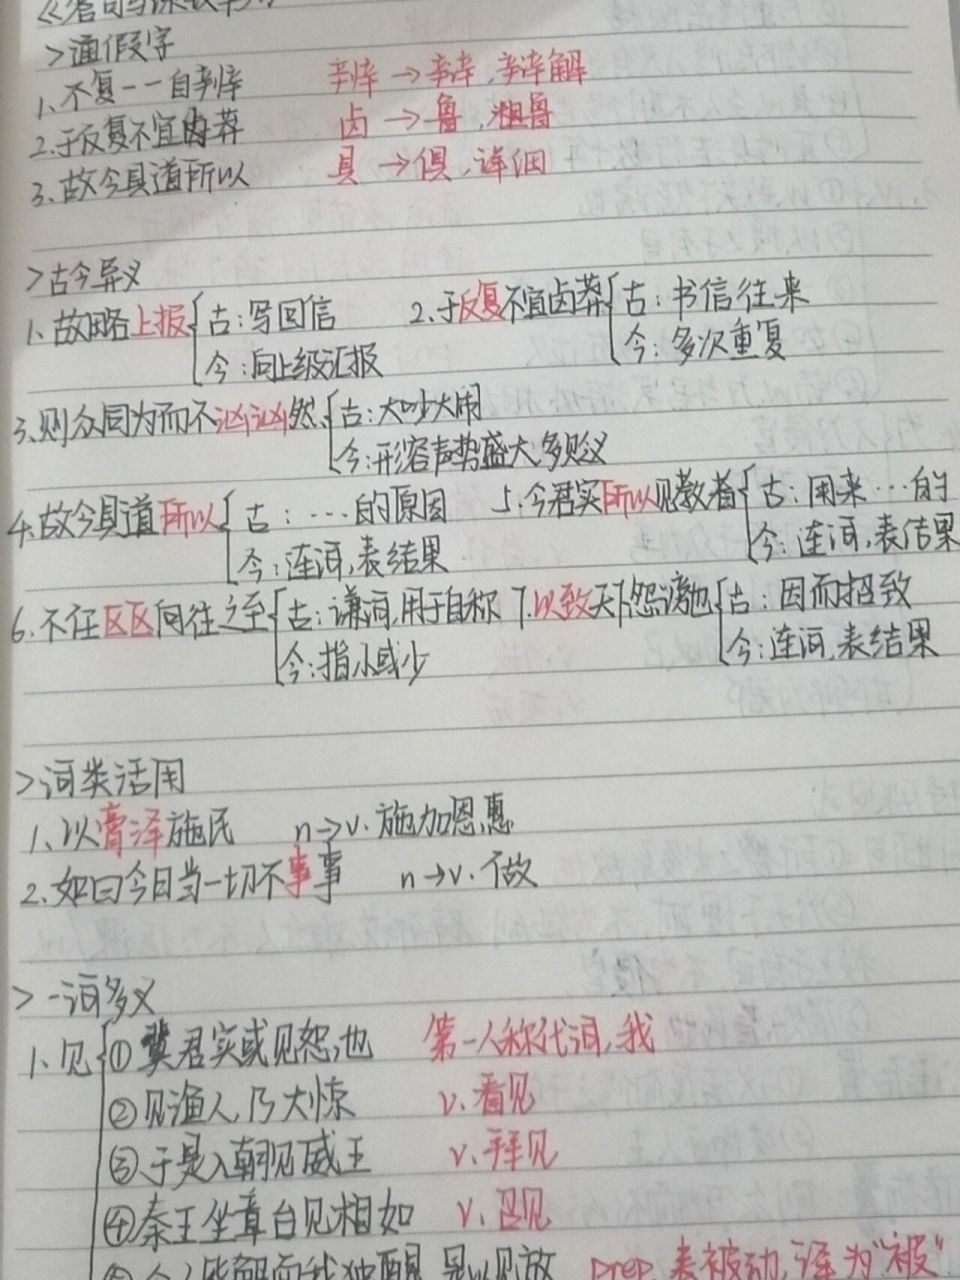 《答司马谏议书》
>通假字
1.不复一一自辨 辨→辩,辩解
2.于反复不宜卤莽 卤→鲁,粗鲁
3.故今具道所以 具→俱,详细
>古今异义
1.故略上报 古:写回信 2.于反复不宜卤莽 古:书信往来
今:向上级汇报 今:多次重复
3.则众何为而不汹汹然 古:大吵大闹
今:形容声势盛大,多贬义
4.故今具道所以 古:…的原因 5.今君实所以见教者 古:用来…的
今:连词,表结果 今:连词,表结果
6.不任区区向往之至 古:谦词,用于自称 7.以致天下怨谤也 古:因而招致
今:指小或少 今:连词,表结果
>词类活用
1.以膏泽施民 n→v.施加恩惠
2.如曰今日当一切不事事 n→v.做
>一词多义
1.见 ①冀君实或见恕也 第一人称代词,我
②见渔人,乃大惊 v.看见
③于是入朝见威王 v.拜见
④秦王坐章台见相如 v.召见
⑤众人皆醉而我独醒,是以见放 prep.表被动,译为"被"